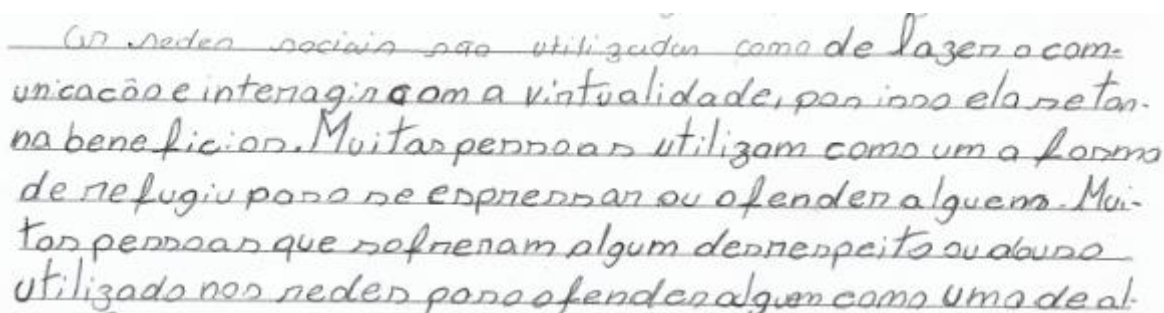 As redes sociais são utilizadas como de lazer o com-
unicacão e interragir com a virtualidade, por isso ela se tor-
na beneficios. Muitas pessoas utilizam como um a forma
de refugiu para se espressar ou ofender alguem. Mui-
tas pessoas que sofreram algum desrespeito ou abuso
utilizado nas redes para ofender alguem como uma de al-